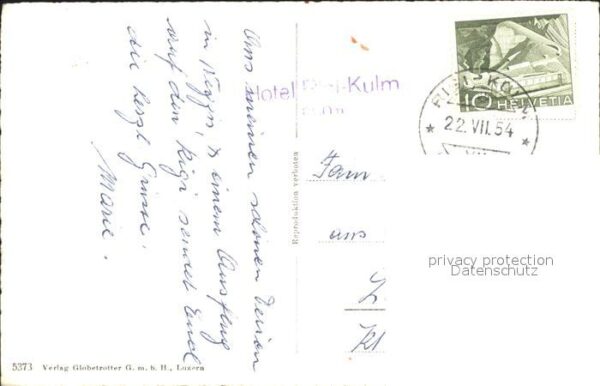 Aus meinen schönen Ferien
in Weggis, & einem Ausflug
auf den Rigi sendet Euch
die herzl. Grüsse.
Marie.
Reproduktion verboten
Hotel Rigi-Kulm
RIGI KULM
22. VII. 54
10 HELVETIA
Fam
privacy protection
Datenschutz
5373 Verlag Globetrotter G. m. b. H., Luzern